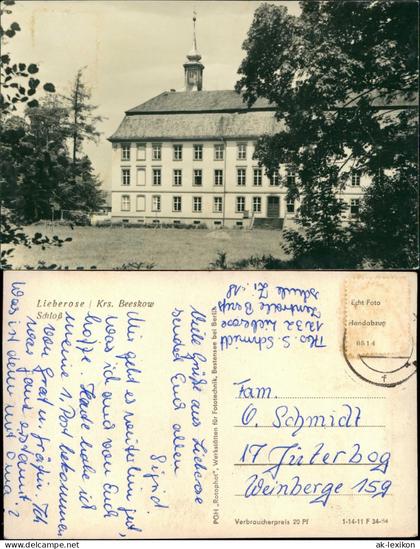 Lieberose / Krs. Beeskow
Schloß
Viele Grüße aus Lieberose
sendet Euch allen
Sigrid
Mir geht es weiterhin gut,
was ich auch von Euch
hoffe. Heute habe ich
meine 1. Post bekommen
von Gral u. Ich
war ganz erstaunt
Was ist denn mit Oma?
S. Schmidt
1232 Lieberose
Zentrale Berufs
schule Zi. 18
PGH „Rotophot“, Werkstätten für Fototechnik, Bestensee bei Berlin
Echt Foto
Handabzug
0514
Fam.
O. Schmidt
17 Jüterbog
Weinberge 159
Verbraucherpreis 20 Pf
1-14-11 F 34-64
© ak-lexikon.com